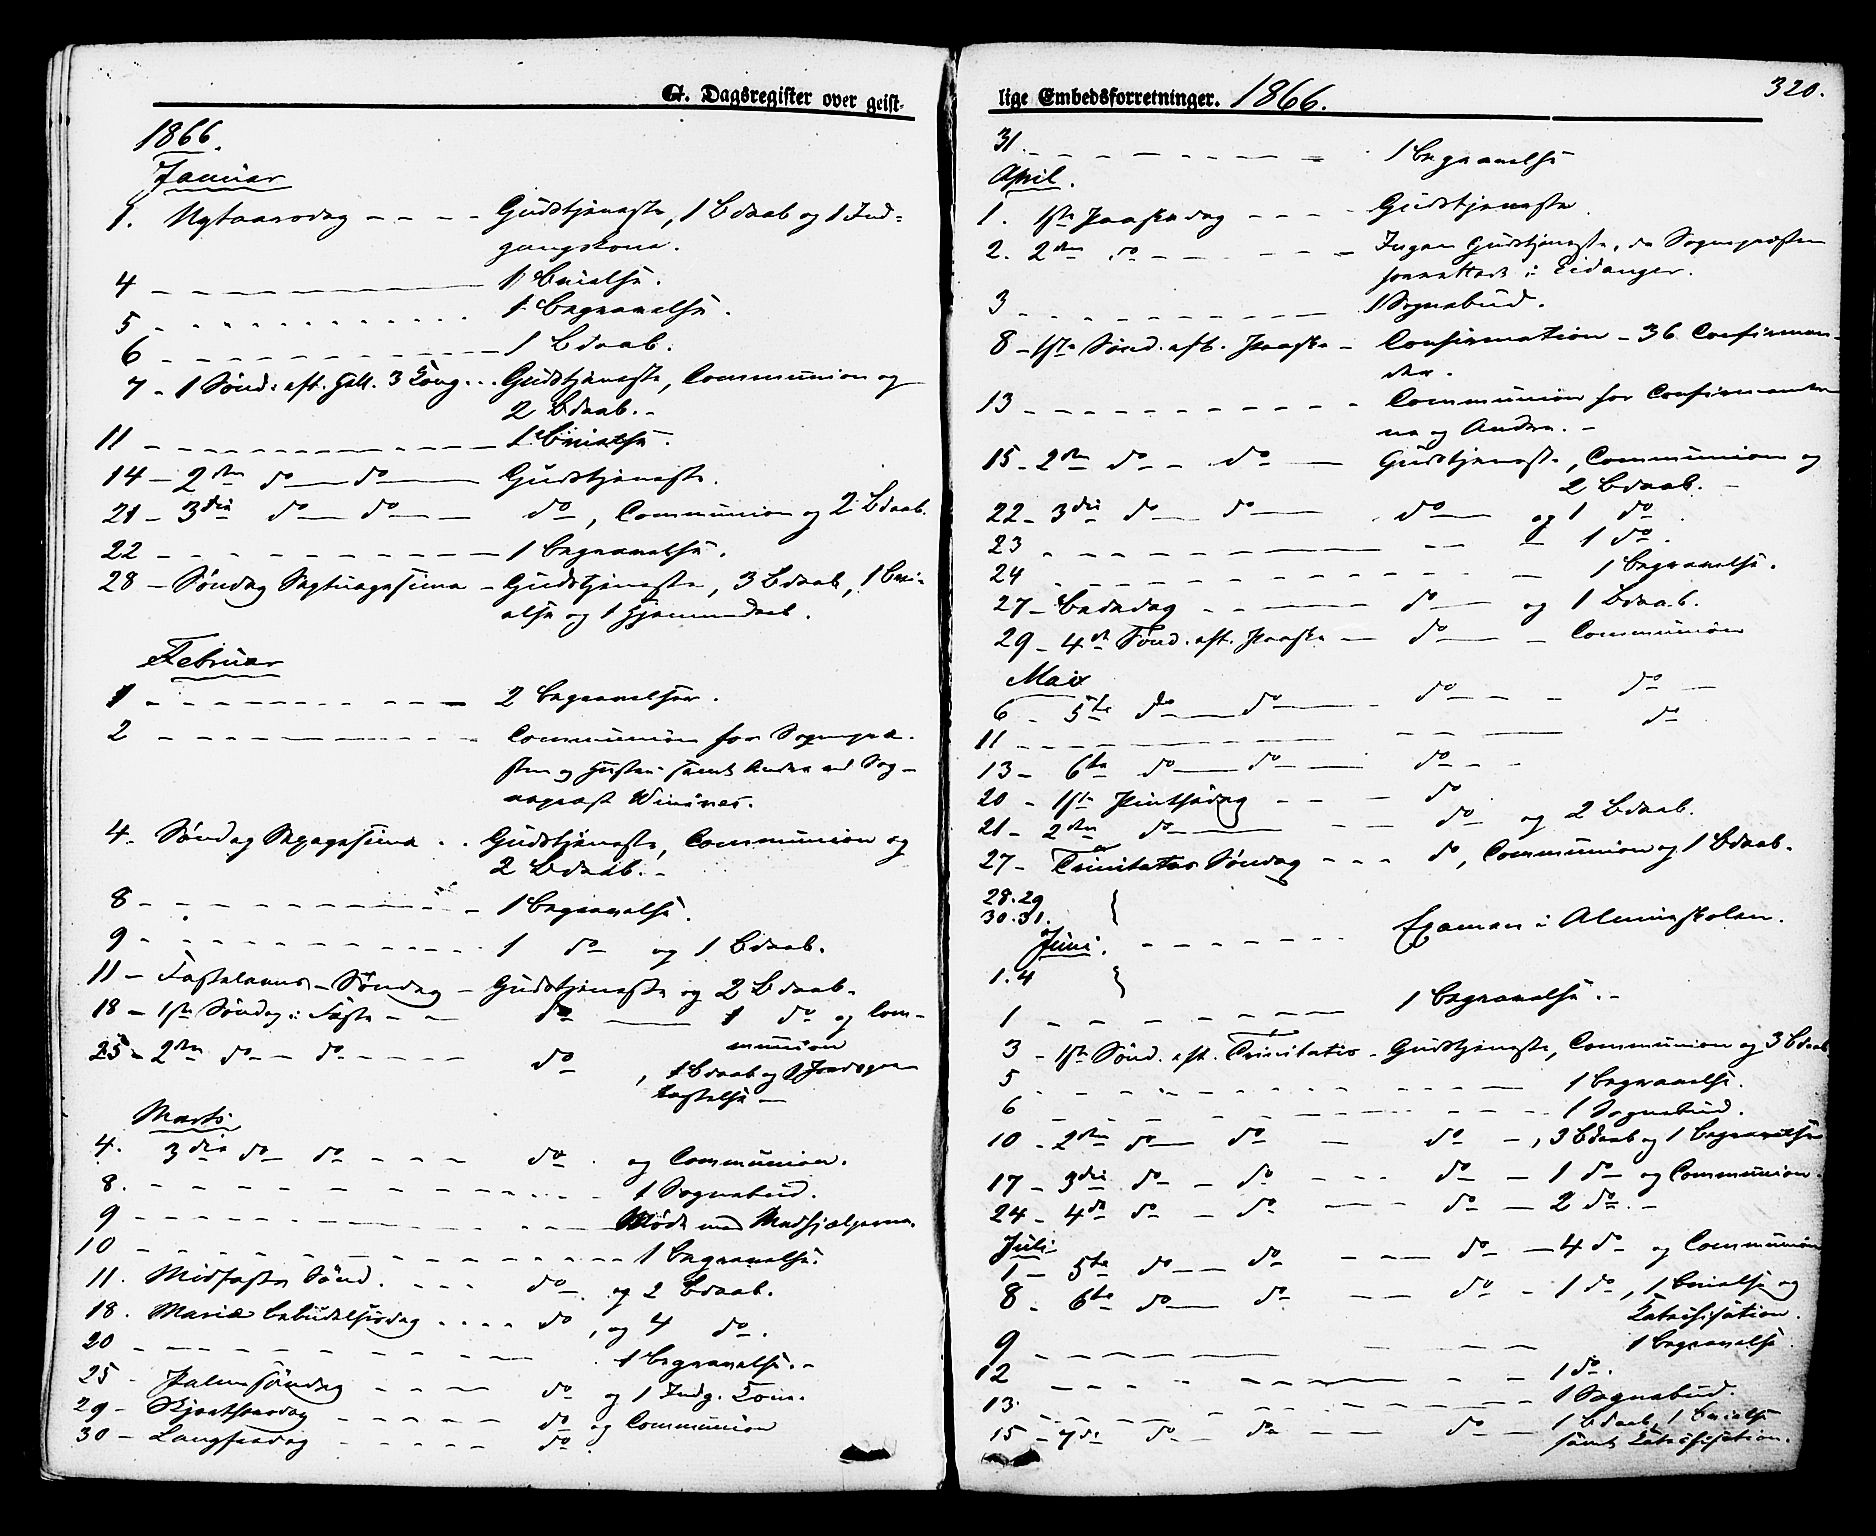 G. Dagsregister over geist-
1866.
Januar
1. Nytaarsdag - - - - Gudstjeneste, 1 Bdaab og 1 Ind-
gangskone.
4 - - - - 1 Vielse.
5 - - - - 1 Begravelse.
6 - - - - 1 Bdaab.
7 - 1 Sønd. eft. Hell. 3 Kong. - - Gudstjeneste, Communion og
2 Bdaab. -
11 - - - - 1 Vielse.
14 - 2den do - do - Gudstjeneste.
21 - 3die do - do - do, Communion og 2 Bdaab.
22 - - - - 1 Begravelse.
28 - Søndag Septuagesima - Gudstjeneste, 3 Bdaab, 1 Vi-
else og 1 Hjemmedaab.
Februar
1 - - - - 2 Begravelser.
2 - - - - Communion for Sognepræ-
sten og Hustru samt Andre ved Sog-
nepræst
4. Søndag Sexagesima - - Gudstjeneste, Communion og
2 Bdaab. -
8 - - - - 1 Begravelse.
9 - - - - 1 do og 1 Bdaab.
11 - Fastelavns-Søndag - Gudstjeneste og 2 Bdaab.
18 - 1ste Søndag i Faste - - do - 1 do og Com-
munion
25 - 2den do - do - - - do, 1 Bdaab og
Marts
4. 3die do - do - - - do - og Communion.
8. - - - - 1 Sognebud.
9 - - - - Møde med Medhjælperne.
10 - - - - 1 Begravelse.
11. Midfaste Sønd. - - - do - og 2 Bdaab.
18. Mariæ Bebudelsesdag - - - do, og 4 do.
20 - - - - 1 Begravelse. -
25 - Palmesøndag - - - do og 1 Indg. Kone.
29 - Skjertorsdag - - - do og Communion
30 - Langfredag - - - do
lige Embedsforretninger. 1866. 320.
31. - - - - 1 Begravelse
April.
1. 1ste Paaskedag - - - Gudstjeneste.
2. 2den do - - - Ingen Gudstjeneste, da Sognepræsten
forrettede i Eidanger.
3 - - - - 1 Sognebud.
8 - 1ste Sønd. eft. Paaske - Confirmation - 36 Confirman-
der.
13 - - - - Communion for Confirmanter-
ne og Andre. -
15 - 2den do - do - Gudstjeneste, Communion og
2 Bdaab. -
22 - 3die do - do - do - og 1 do
23 - - - - 1 do.
24 - - - - 1 Begravelse.
27 - Bededag - - - do - og 1 Bdaab.
29 - 4de Sønd. eft. Paaske - do - - Communion
Mai
6 - 5te do - do - - do - - do -
11 - - - - do
13 - 6te do - do - do - -
20 - 1ste Pintsedag - - - do
21 - 2den do - - - do - og 2 Bdaab.
27 - Trinitatis Søndag - - - do, Communion og 1 Bdaab.
28. 29
30. 31.
Juni. - - - - Examen i Almueskolen.
1. 4
1 - - - - 1 Begravelse. -
3 - 1ste Sønd. eft. Trinitatis - Gudstjeneste, Communion og 3 Bdaab
5 - - - - 1 Begravelse.
6 - - - - 1 Sognebud.
10 - 2den do - do - do -, 3 Bdaab og 1 Begravelse
17 - 3die do - do - - do - 1 do - og Communion.
24 - 4de do - do - - do - 2 do. -
Juli
1 - 5te do - do - - do - 4 do - og Communion
8 - 6te do - do - - do - 1 do, 1 Vielse og
Katechisation.
9 - - - - 1 Begravelse
12 - - - - 1 do.
13. - - - - 1 Sognebud.
15 - 7de do - do - - do - 1 Bdaab, 1 Vielse
samt Katechisation.